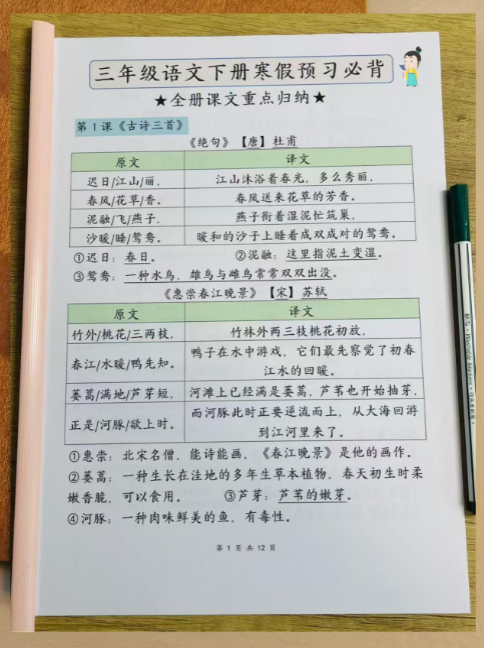 三年级语文下册寒假预习必背
★全册课文重点归纳★
第1课《古诗三首》
《绝句》【唐】杜甫
原文 译文
迟日/江山/丽， 江山沐浴着春光，多么秀丽，
春风/花草/香。 春风送来花草的芳香。
泥融/飞/燕子， 燕子衔着湿泥忙筑巢，
沙暖/睡/鸳鸯。 暖和的沙子上睡着成双成对的鸳鸯。
①迟日：春日。 ②泥融：这里指泥土变湿。
③鸳鸯：一种水鸟，雄鸟与雌鸟常常双双出没。
《惠崇春江晚景》【宋】苏轼
原文 译文
竹外/桃花/三两枝， 竹林外两三枝桃花初放，
春江/水暖/鸭先知。 鸭子在水中游戏，它们最先察觉了初春
江水的回暖。
蒌蒿/满地/芦芽短， 河滩上已经满是蒌蒿，芦苇也开始抽芽，
正是/河豚/欲上时。 而河豚此时正要逆流而上，从大海回游
到江河里来了。
①惠崇：北宋名僧，能诗能画，《春江晚景》是他的画作。
②蒌蒿：一种生长在洼地的多年生草本植物，春天初生时柔
嫩香脆，可以食用。 ③芦芽：芦苇的嫩芽。
④河豚：一种肉味鲜美的鱼，有毒性。
第 1 页 共 12 页